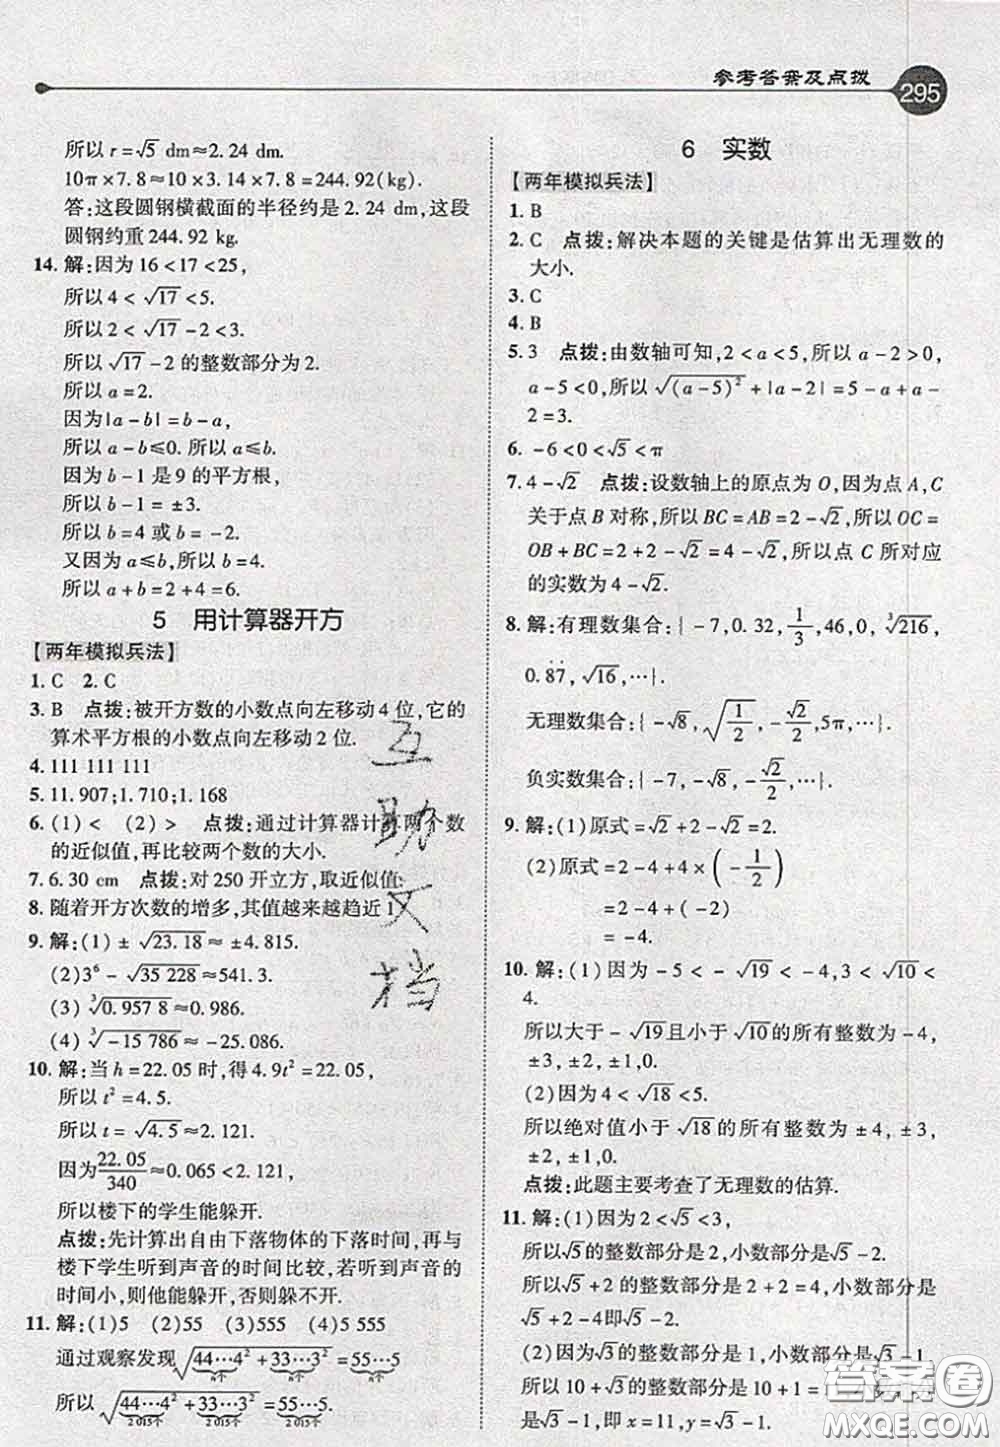 参考答案及点拨
295
所以 r=√5 dm≈2.24 dm.
10π×7.8≈10×3.14×7.8=244.92(kg).
答:这段圆钢横截面的半径约是2.24 dm,这段
圆钢约重244.92 kg.
14. 解:因为16<17<25,
所以4<√17<5.
所以2<√17-2<3.
所以√17-2的整数部分为2.
所以 a=2.
因为|a-b|=b-a,
所以 a-b≤0. 所以 a≤b.
因为 b-1 是9的平方根,
所以 b-1=±3.
所以 b=4 或 b=-2.
又因为 a≤b,所以 b=4.
所以 a+b=2+4=6.
5 用计算器开方
【两年模拟兵法】
1. C 2. C
3. B 点拨:被开方数的小数点向左移动4位,它的
算术平方根的小数点向左移动2位.
4. 111 111 111
5. 11.907;1.710;1.168
6. (1)< (2)> 点拨:通过计算器计算两个数
的近似值,再比较两个数的大小.
7. 6.30 cm 点拨:对250开立方,取近似值.
8. 随着开方次数的增多,其值越来越趋近1.
9. 解:(1)±√23.18≈±4.815.
(2)3⁶-√35 228≈541.3.
(3)∛0.957 8≈0.986.
(4)∛-15 786≈-25.086.
10. 解:当 h=22.05时,得4.9t²=22.05,
所以 t²=4.5.
所以 t=√4.5≈2.121.
因为22.05/340≈0.065<2.121,
所以楼下的学生能躲开.
点拨:先计算出自由下落物体的下落时间,再与
楼下学生听到声音的时间比较,若听到声音的
时间小,则他能躲开,否则不能躲开.
11. 解:(1)5 (2)55 (3)555 (4)5 555
通过观察发现√44…4²+33…3²=55…5
n个 n个 n个
所以√44…4²+33…3²=55…5.
2 015个 2 015个 2 015个
6 实数
【两年模拟兵法】
1. B
2. C 点拨:解决本题的关键是估算出无理数的
大小.
3. C
4. B
5. 3 点拨:由数轴可知,2<a<5,所以 a-2>0,
a-5<0,所以√(a-5)²+|a-2|=5-a+a-
2=3.
6. -6<0<√5<π
7. 4-√2 点拨:设数轴上的原点为 O,因为点 A,C
关于点 B 对称,所以 BC=AB=2-√2,所以 OC=
OB+BC=2+2-√2=4-√2,所以点 C 所对应
的实数为4-√2.
8. 解:有理数集合:{-7,0.32,1/3,46,0,∛216,
0.8̇7̇,√16,…}.
无理数集合:{-√8,√1/2,-√2/2,5π,…}.
负实数集合:{-7,-√8,-√2/2,…}.
9. 解:(1)原式=√2+2-√2=2.
(2)原式=2-4+4×(-1/2)
=2-4+(-2)
=-4.
10. 解:(1)因为-5<-√19<-4,3<√10<
4.
所以大于-√19且小于√10的所有整数为-4,
±3,±2,±1,0.
(2)因为4<√18<5.
所以绝对值小于√18的所有整数为±4,±3,
±2,±1,0.
点拨:此题主要考查了无理数的估算.
11. 解:(1)因为2<√5<3,
所以√5的整数部分是2,小数部分是√5-2.
所以√5+2的整数部分是2+2=4,小数部分是
√5+2-4即√5-2.
(2)因为√3的整数部分是1,小数部分是√3-1,
所以10+√3的整数部分是10+1=11,小数部分
是√3-1,即 x=11,y=√3-1.
互
助
文
档
答案圈
MXQE.COM